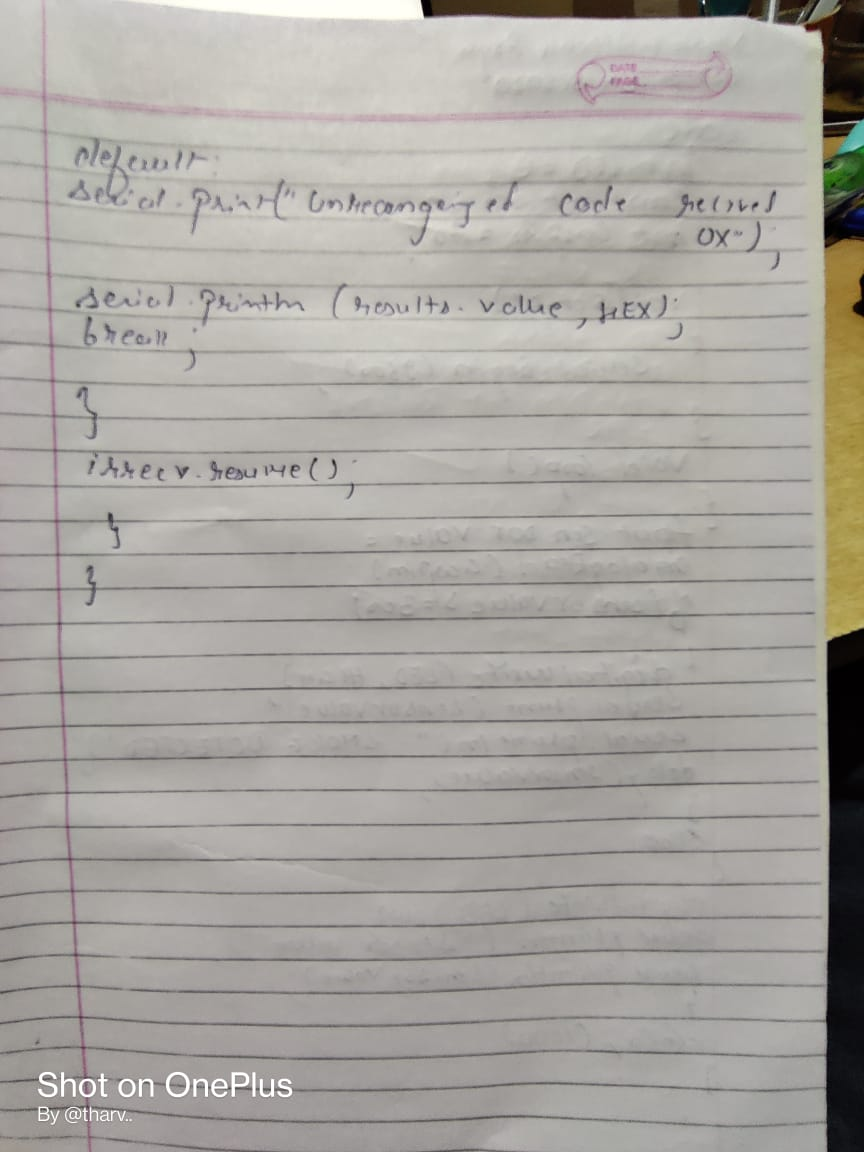 DATE
PAGE
default:
serial.print("Unrecongeized code recived
0X");
serial.println (results.value, HEX);
break;
}
irrecv.resume();
}
}
Shot on OnePlus
By @tharv..